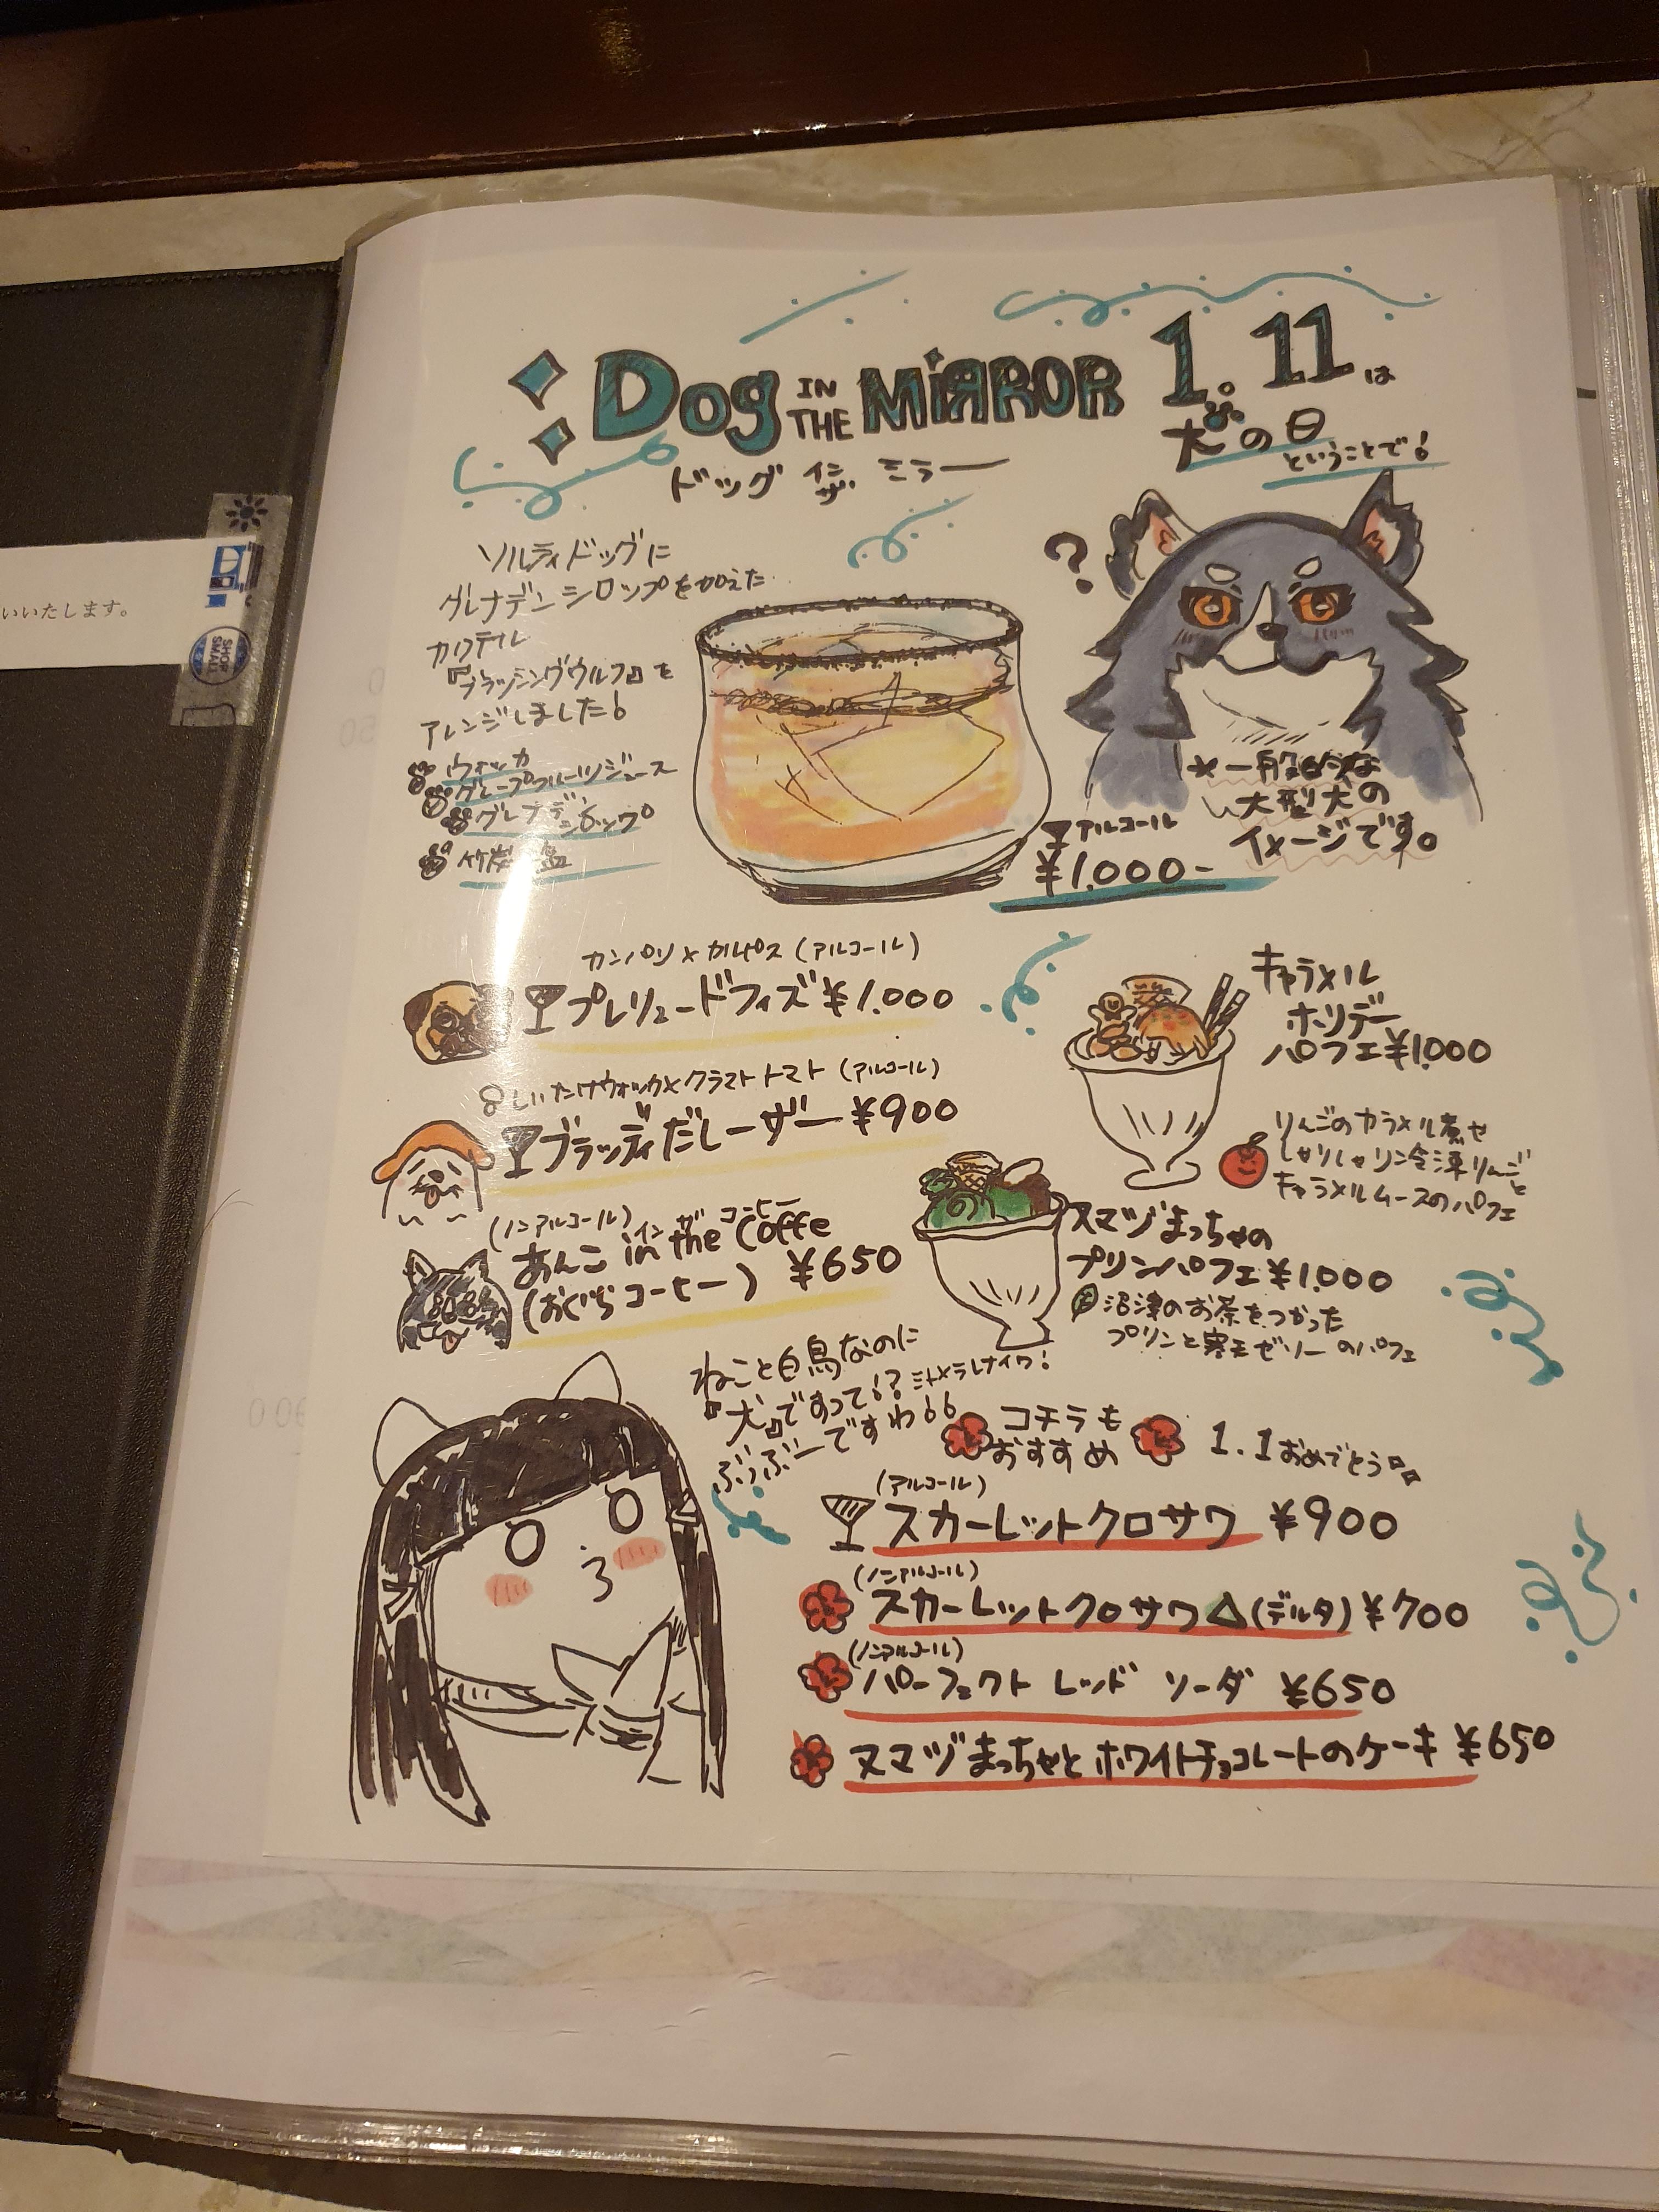 Dog IN THE MIRROR 1.11 は
犬の日
ということで!
ドッグ イン ザ ミラー
ソルティドッグに
グレナデンシロップを加えた
カクテル
『ブラッシングウルフ』を
アレンジしました!
ウォッカ
グレープフルーツジュース
グレナデンシロップ
竹炭塩
?
*一般的な
大型犬の
イメージです。
アルコール
¥1.000-
カンパリ×カルピス(アルコール)
プレリュードフィズ ¥1.000
しいたけウォッカ×クラマトトマト(アルコール)
ブラッディだしーザー ¥900
(ノンアルコール) イン ザ コーヒー
あんこ in the Coffe
(おぐらコーヒー) ¥650
キャラメル
ホリデー
パフェ ¥1.000
りんごのカラメル煮や
しゃりしゃり冷凍りんごと
キャラメルムースのパフェ
ヌマヅまっちゃの
プリンパフェ ¥1.000
沼津のお茶をつかった
プリンと寒天ゼリーのパフェ
ねこと白鳥なのに
『犬』ですって!? ミトメラレナイワ!
ぶっぶーですわ!!
コチラも
おすすめ
1.1おめでとう
(アルコール)
スカーレットクロサワ ¥900
(ノンアルコール)
スカーレットクロサワ△(デルタ) ¥700
(ノンアルコール)
パーフェクト レッド ソーダ ¥650
ヌマヅまっちゃとホワイトチョコレートのケーキ ¥650
いいたします。
SHOP
SMALL